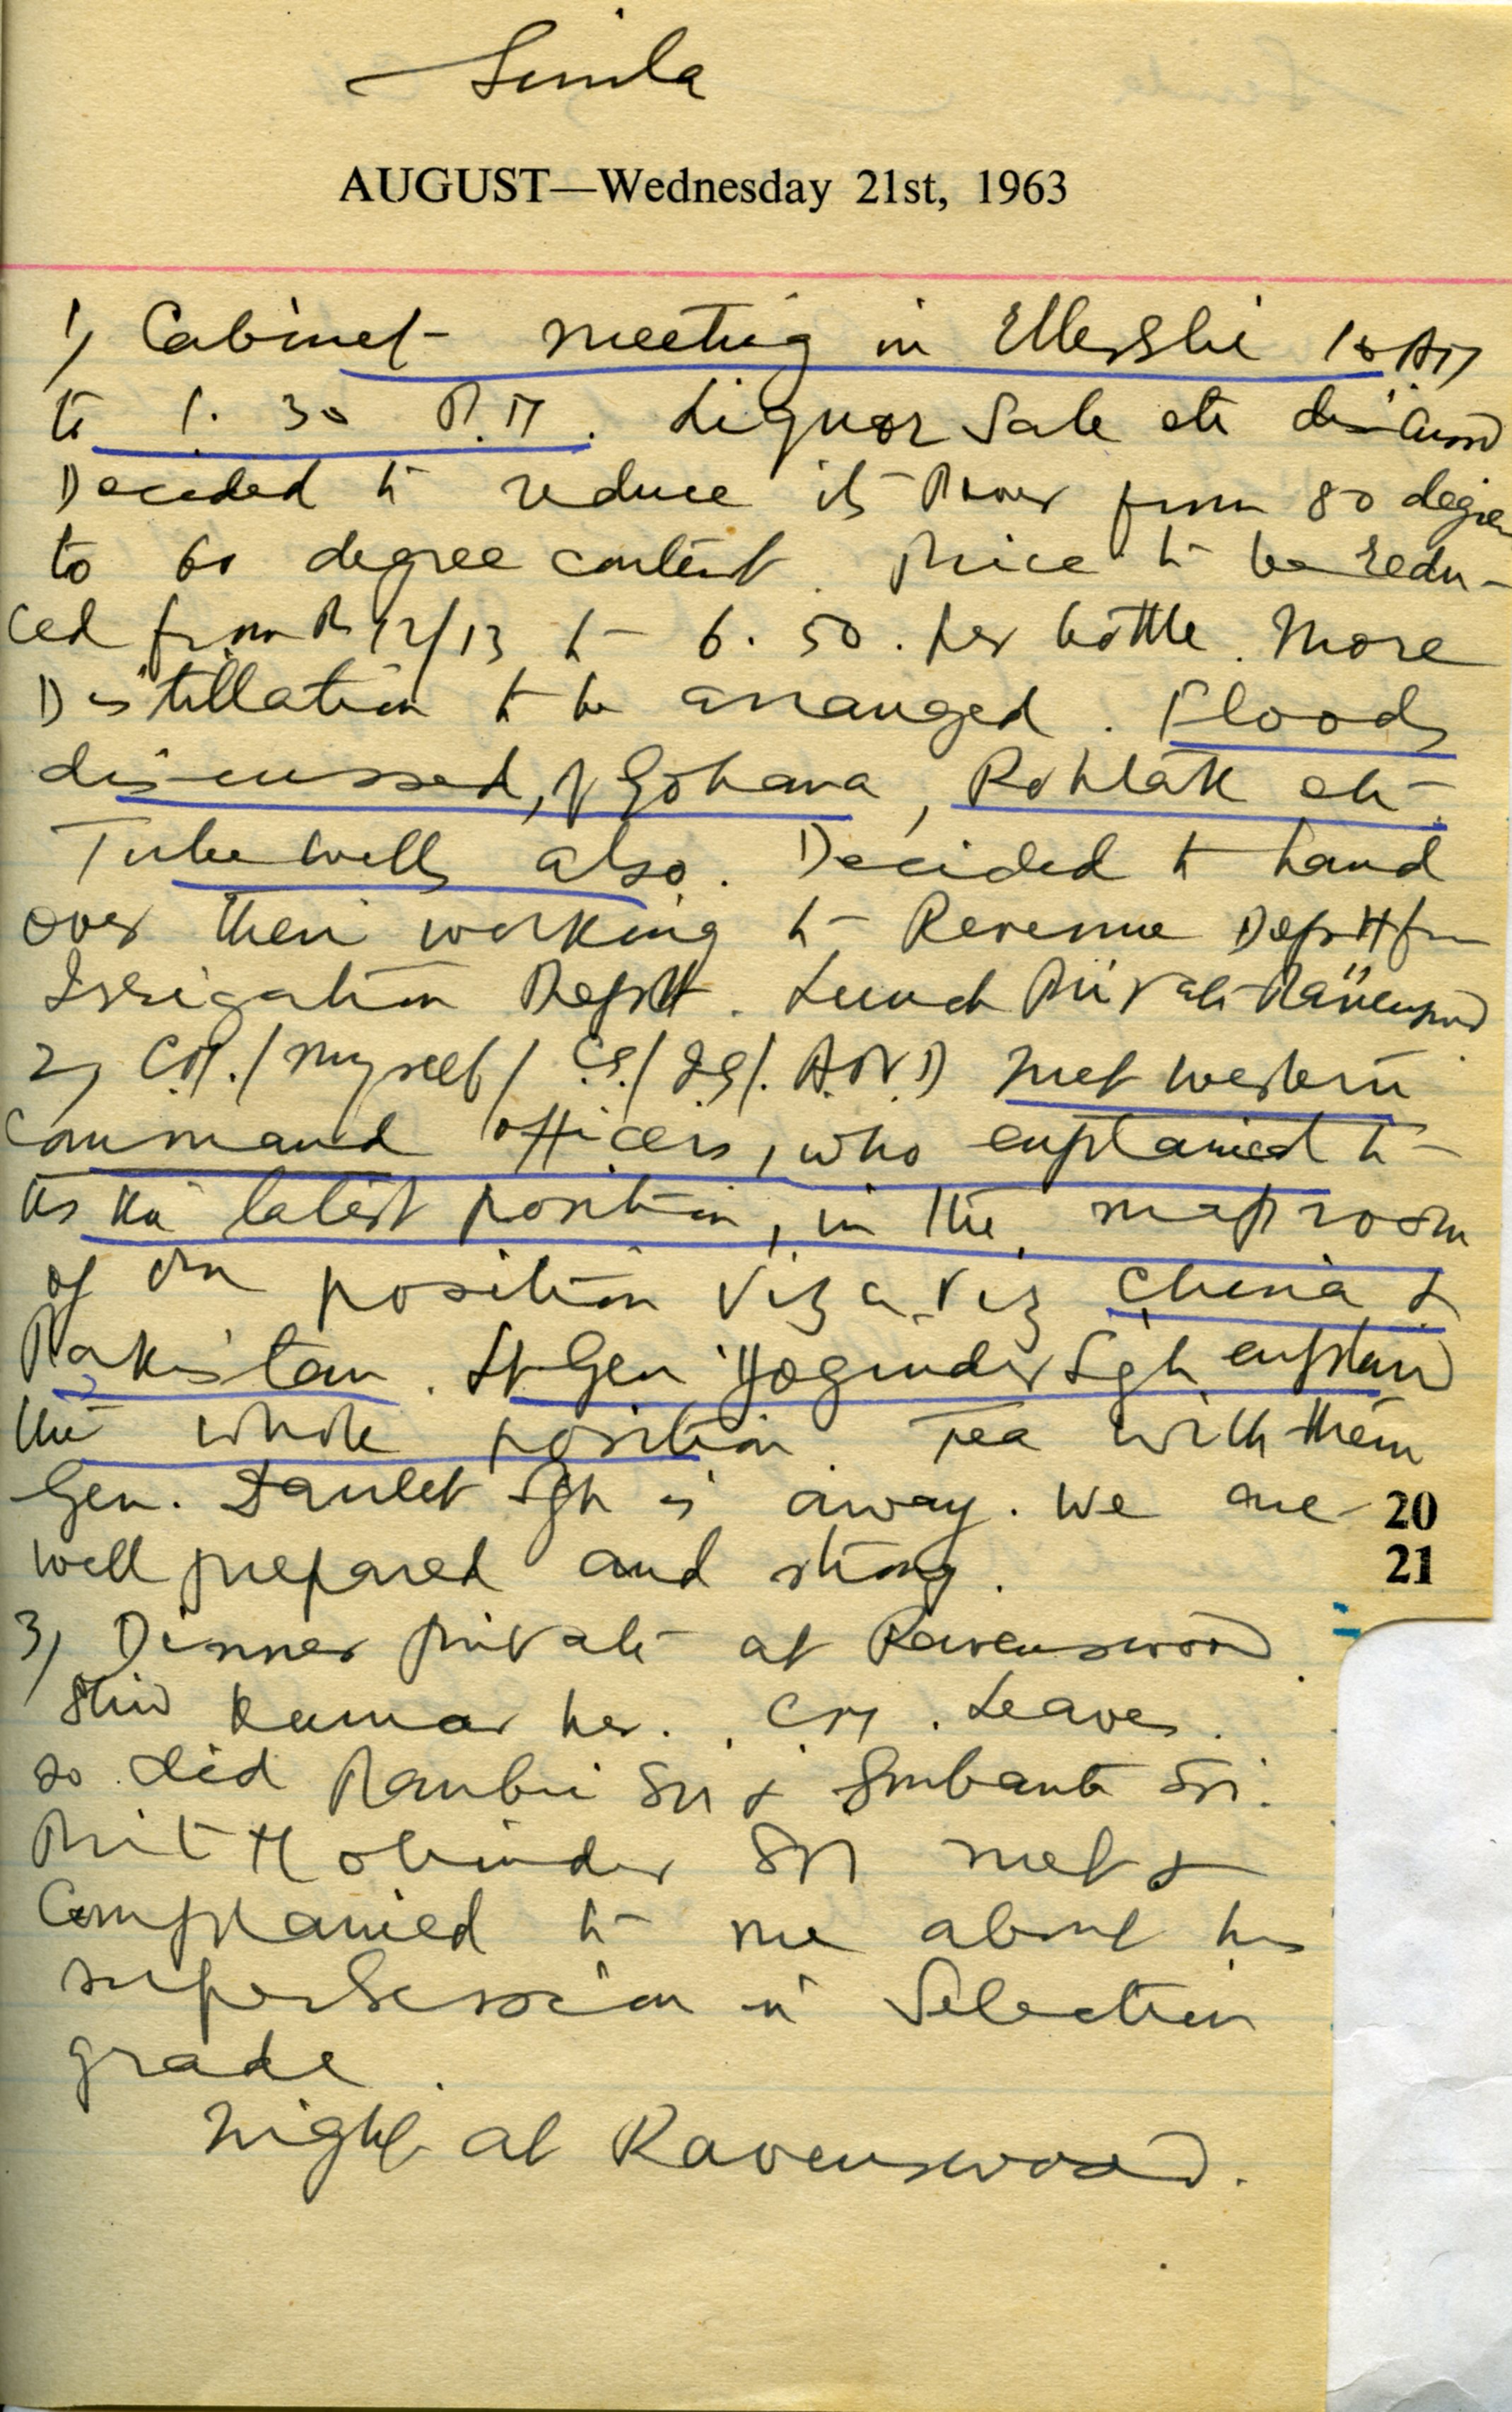 Simla
AUGUST—Wednesday 21st, 1963
1) Cabinet meeting in Ellerslie 10 AM
to 1.30 P.M. Liquor Sale etc discussed
Decided to reduce its Power from 80 degree
to 60 degree content. Price to be redu-
ced from Rs 12/13 to 6.50. per bottle. More
Distillation to be arranged. Floods
discussed, of Gohana, Rohtak etc.
Tubewells also. Decided to hand
over their working to Revenue Deptt from
Irrigation Deptt. Lunch Private Ravenswood
2) CM./myself/CS/IG/. met western
Command officers, who explained to
us the latest position, in the map room
of our position viz a viz China &
Pakistan. Lt Gen Yoginder Sgh explained
the whole position. Tea with them
Gen. Daulet Sgh is away. We are
20
well prepared and strong.
21
3) Dinner private at Ravenswood
Shiv Kumar her. CM. Leaves.
so did Ranbir &
Mohinder met &
Complained to me about his
supersession in Selection
grade.
Night at Ravenswood.